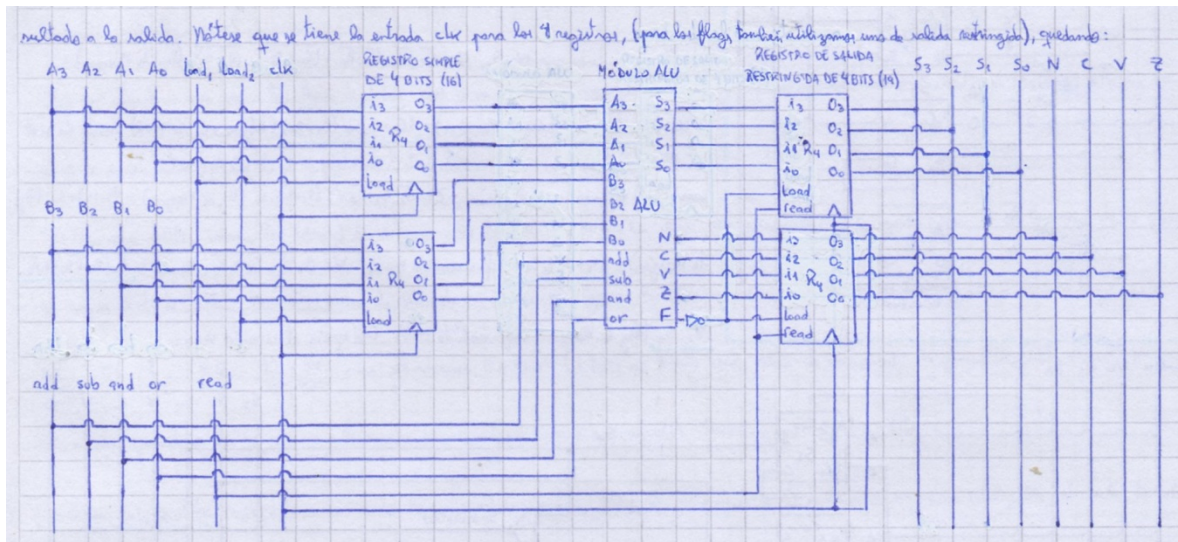 sultado a la salida. Nótese que se tiene la entrada clk para los 4 registros, (para los flags también utilizamos uno de salida restringida), quedando:
A3 A2 A1 A0 load1 load2 clk
REGISTRO SIMPLE
DE 4 BITS (16)
MÓDULO ALU
REGISTRO DE SALIDA
RESTRINGIDA DE 4 BITS (19)
S3 S2 S1 S0 N C V Z
i3 O3
i2 O2
i1 R4 O1
i0 O0
load
A3 S3
A2 S2
A1 S1
A0 S0
B3
B2 ALU
B1
B0 N
add C
sub V
and Z
or F
i3 O3
i2 O2
i1 R4 O1
i0 O0
load
read
B3 B2 B1 B0
i3 O3
i2 O2
i1 R4 O1
i0 O0
load
i3 O3
i2 O2
i1 R4 O1
i0 O0
load
read
add sub and or read